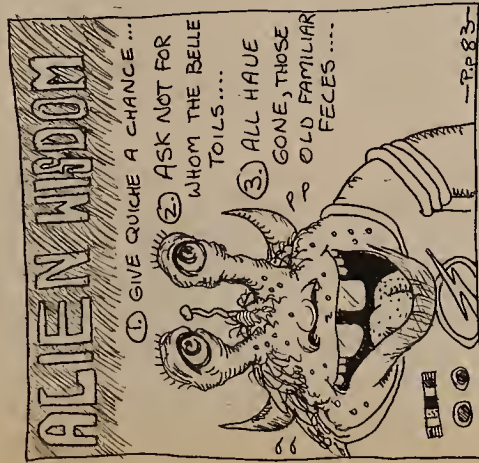 ALIEN WISDOM
① GIVE QUICHE A CHANCE...
② ASK NOT FOR
WHOM THE BELLE
TOILS.....
③ ALL HAVE
GONE, THOSE
OLD FAMILIAR
FECES.....